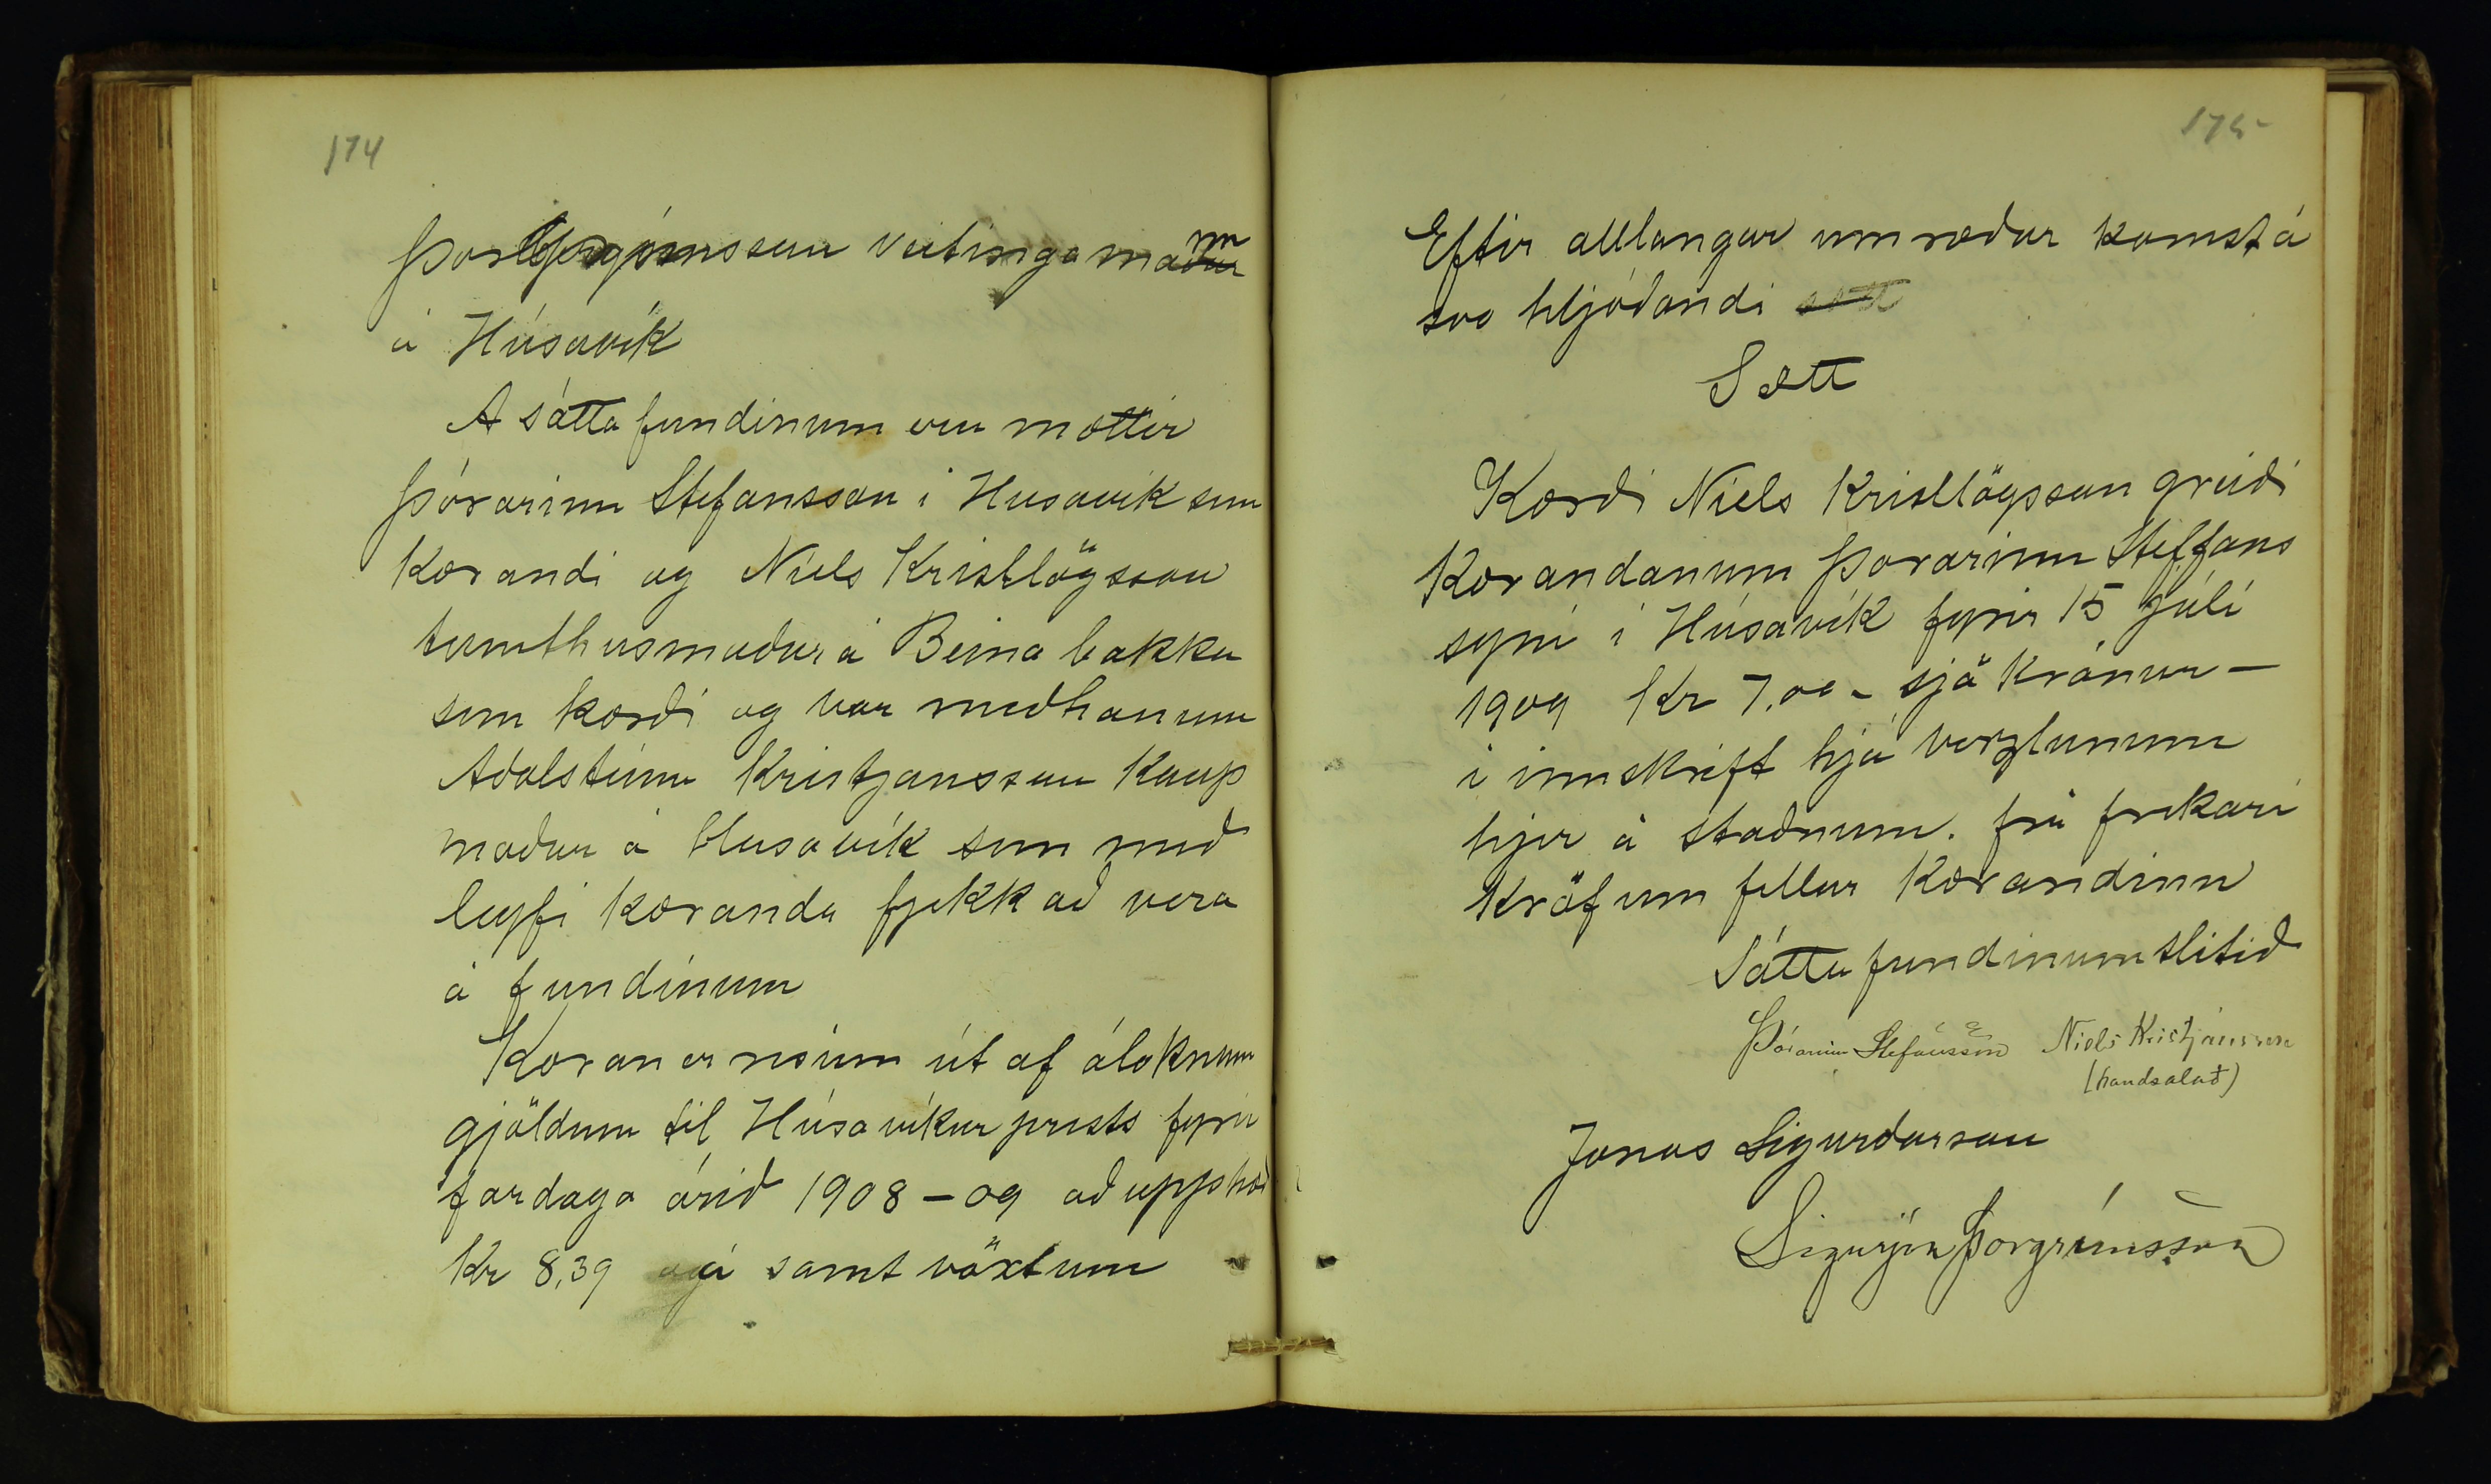 174
Þorgrímssun veitingamann
á Húsavík
A sáttafundinum eru mættir
Þórarinn Stefansson i Husavík sem
kærandi og Niels Kristlögsson
tumthusmaður á Beina bakka
sem kærði og var með hanum
Aðalsteinn Kristjansson Kaup
maður á Husavík sem með
leyfi kæranda fjekk að vera
á fundinum
Kæran er risinn út af áloknum
gjöldum til Húsavíkur prests fyrir
fardaga árið 1908-09 að upphæð
Kr 8,39 á samt vöxtum
175
Eftir alllangar umræður komst á
svo hljóðandi sætt
Sætt
Kærði Niels Kristlögssun greiði
kærandanum Þorarinn Steffans
syni i Húsavík fyrir 15 júlí
1909 Kr 7.00 - sjö krónur -
i innskrift hjá verzlunum
hjer á staðnum. frá frekari
kröfum fellur kærandinn
Sáttafundinum slitið
Þórarinn Stefánsson Niels Kristjánsson
(handsalað)
Jonas Sigurðarsun
Sigurjón Þorgrímsson